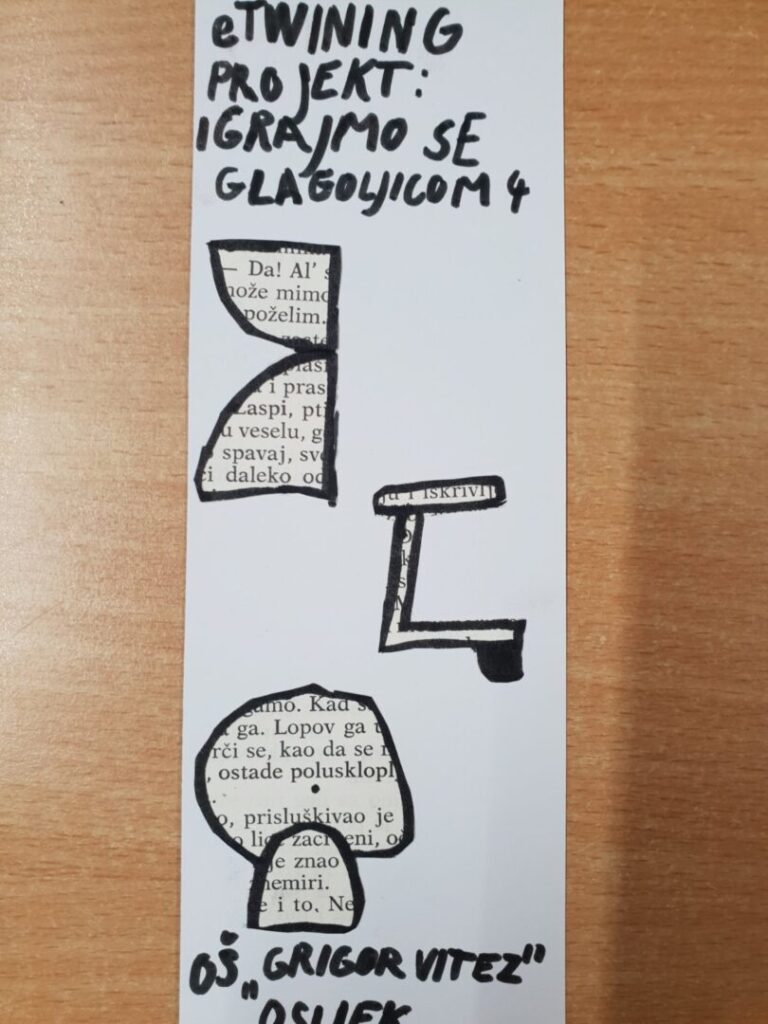 eTWINING
PROJEKT:
IGRAJMO SE
GLAGOLJICOM 4
— Da! Al'
mimo
poželim.
i pras
Zaspi, pti
u veselu, g
spavaj, sve
daleko od
i iskrivlj
gamo. Kad
ga. Lopov ga
rči se, kao da se
, ostade polusklopl
o, prisluškivao je
je znao
nemiri.
i to. Ne
OŠ „GRIGOR VITEZ"
OSIJEK